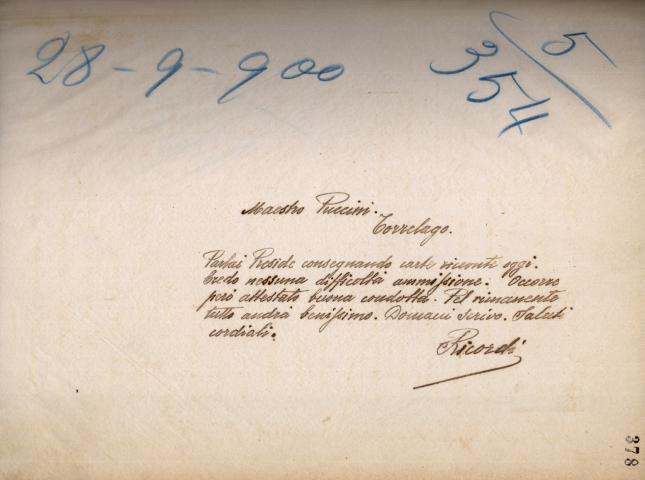 28-9-900
5/
354
Maestro Puccini.
Torrelago.
Parlai Preside consegnando carte ricevute oggi.
Credo nessuna difficoltà ammissione. Occorre
però attestato buona condotta. Pel rimanente
tutto andrà benissimo. Domani scrivo. Saluti
cordiali.
Ricordi
378